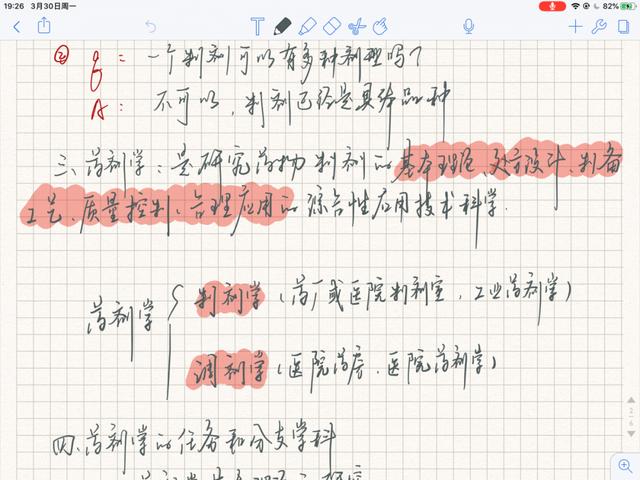 19:26 3月30日周一
82%
② Q: 一个制剂可以有多种剂型吗?
A: 不可以,制剂已经是具体品种
三、药剂学:是研究药物制剂的基本理论、处方设计、制备
工艺、质量控制、合理应用的综合性应用技术科学.
药剂学
制剂学(药厂或医院制剂室,工业药剂学)
调剂学(医院药房,医院药剂学)
四、药剂学的任务和分支学科
2/6